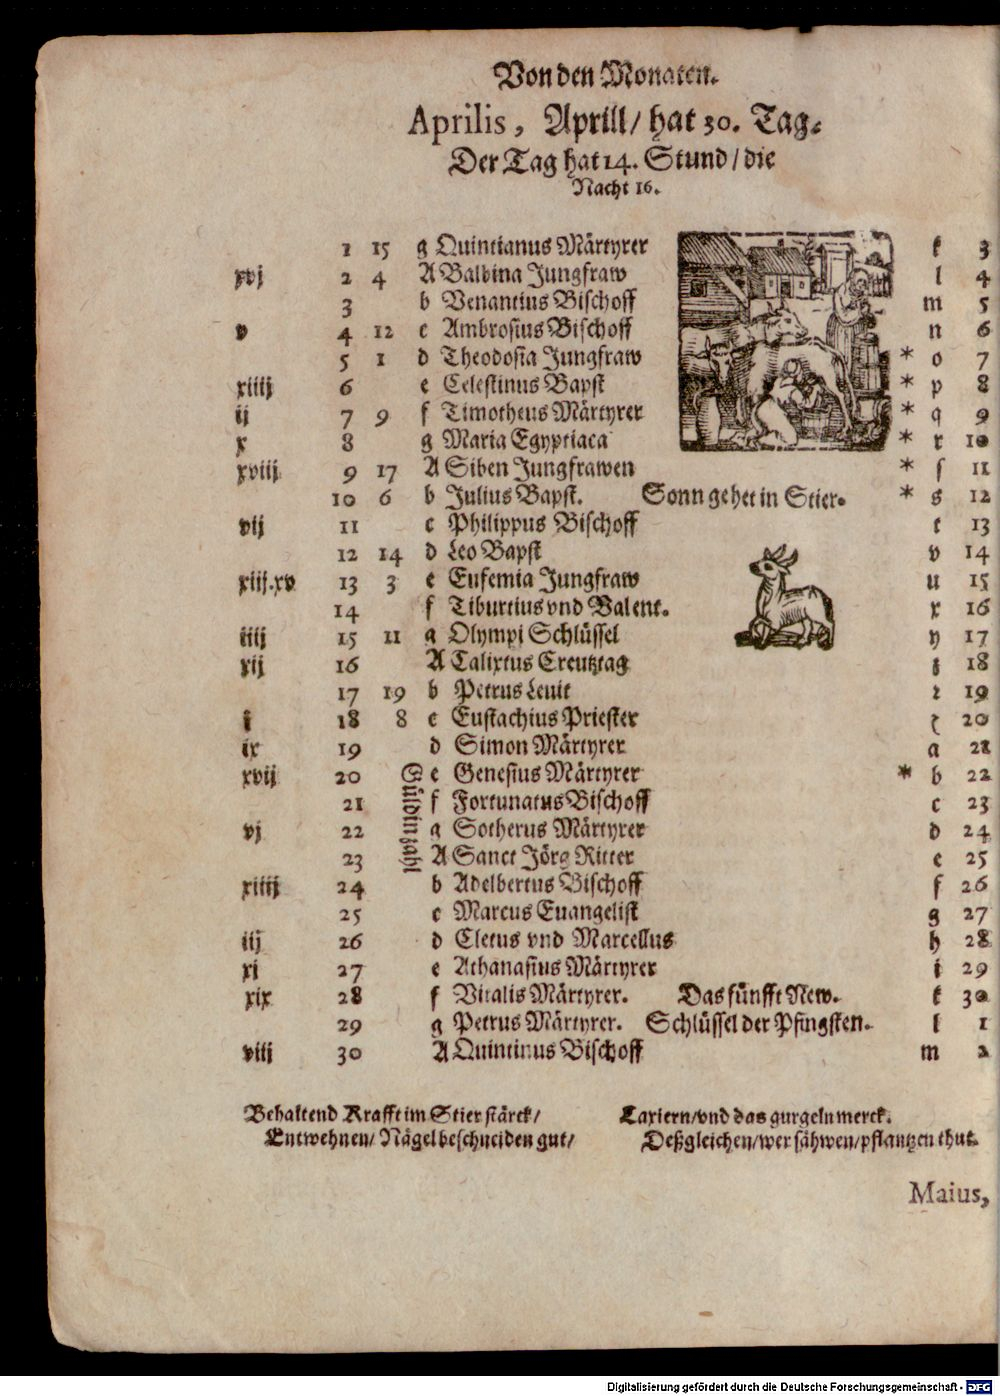 Von den Monaten.
Aprilis, Aprill/ hat 30. Tag.
Der Tag hat 14. Stund/ die
Nacht 16.
1 15 g Quintianus Märtyrer k 3
xvj 2 4 A Balbina Jungfraw l 4
3 b Venantius Bischoff m 5
v 4 12 c Ambrosius Bischoff n 6
5 1 d Theodosia Jungfraw * o 7
xiiij 6 e Celestinus Bapst * p 8
ij 7 9 f Timotheus Märtyrer * q 9
x 8 g Maria Egyptiaca * r 10
xviij 9 17 A Siben Jungfrawen * ſ 11
10 6 b Julius Bapst. Sonn gehet in Stier. * s 12
vij 11 c Philippus Bischoff t 13
12 14 d Leo Bapst v 14
xiij.xv 13 3 e Eufemia Jungfraw u 15
14 f Tiburtius vnd Valent. x 16
iiij 15 11 g Olympj Schlüssel y 17
xij 16 A Calixtus Creutztag z 18
17 19 b Petrus Levit 19
j 18 8 c Eustachius Priester 20
ix 19 d Simon Märtyrer a 21
xvij 20 e Genesius Märtyrer * b 22
21 f Fortunatus Bischoff c 23
vj 22 g Sotherus Märtyrer d 24
23 A Sanct Jörg Ritter e 25
Güldinzahl
xiiij 24 b Adelbertus Bischoff f 26
25 c Marcus Euangelist g 27
iij 26 d Cletus vnd Marcellus h 28
xj 27 e Athanasius Märtyrer i 29
xix 28 f Vitalis Märtyrer. Das fünfft New. k 30
29 g Petrus Märtyrer. Schlüssel der Pfingsten. l 1
viij 30 A Quintinus Bischoff m 2
Behaltend Krafft im Stier stärck/ Laxiern/vnd das gurgeln merck.
Entwehnen/ Nägel beschneiden gut/ Deßgleichen/wer sähwen/pflantzen thut.
Maius,
Digitalisierung gefördert durch die Deutsche Forschungsgemeinschaft - DFG